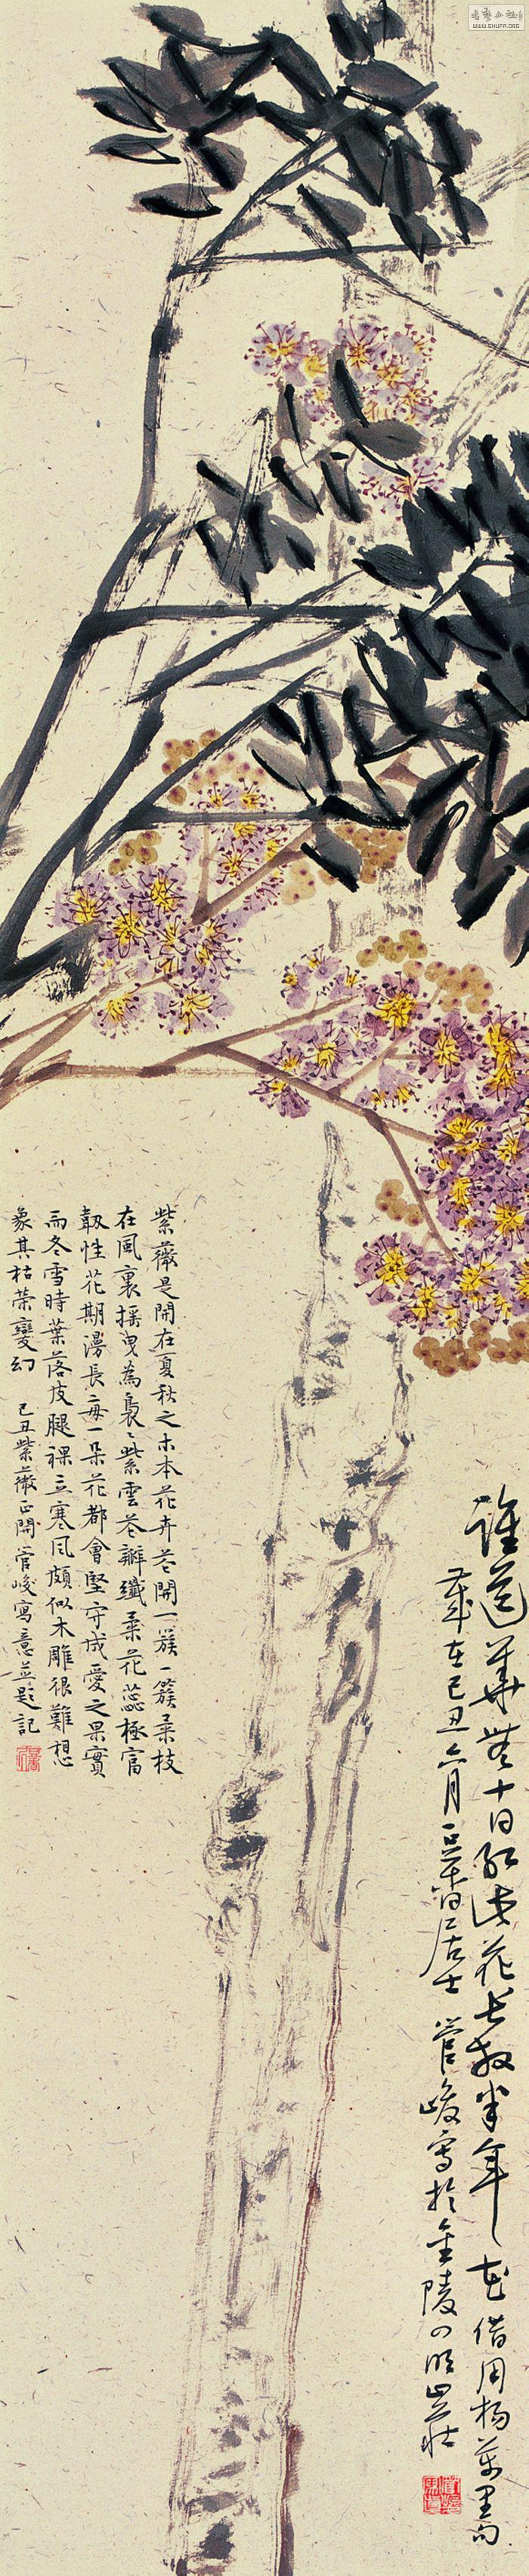 誰道華無十日紅此花長放半年 花借用楊萬里句
歲在己丑六月 豆香居士 管峻寫於金陵 山莊
紫薇是開在夏秋之木本花卉花開一簇一簇柔枝
在風裏搖曳為裊裊紫雲花瓣纖柔花蕊極富
韌性花期漫長每一朵花都會堅守成愛之果實
而冬雪時葉落皮腿裸立寒風頗似木雕很難想
象其枯榮變幻 己丑紫薇正開管峻寫意並題記
WWW.SHUFA.ORG